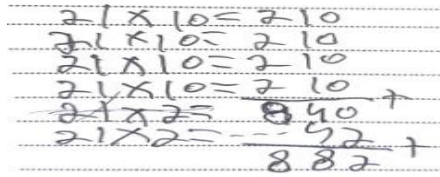 21 × 10 = 210
21 × 10 = 210
21 × 10 = 210
21 × 10 = 210 +
21 × 2 = 840
21 × 2 = --- 42 +
882